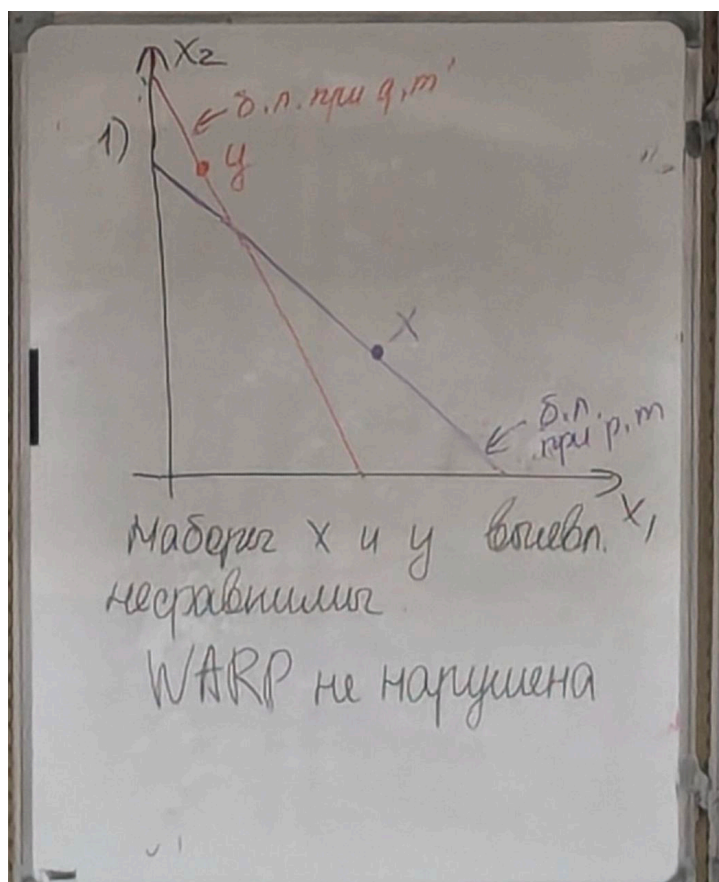 x₂
← б.л. при q, m'
1)
y
x
← б.л.
при p, m
x₁
Наборы x и y выявл.
несравнимы.
WARP не нарушена